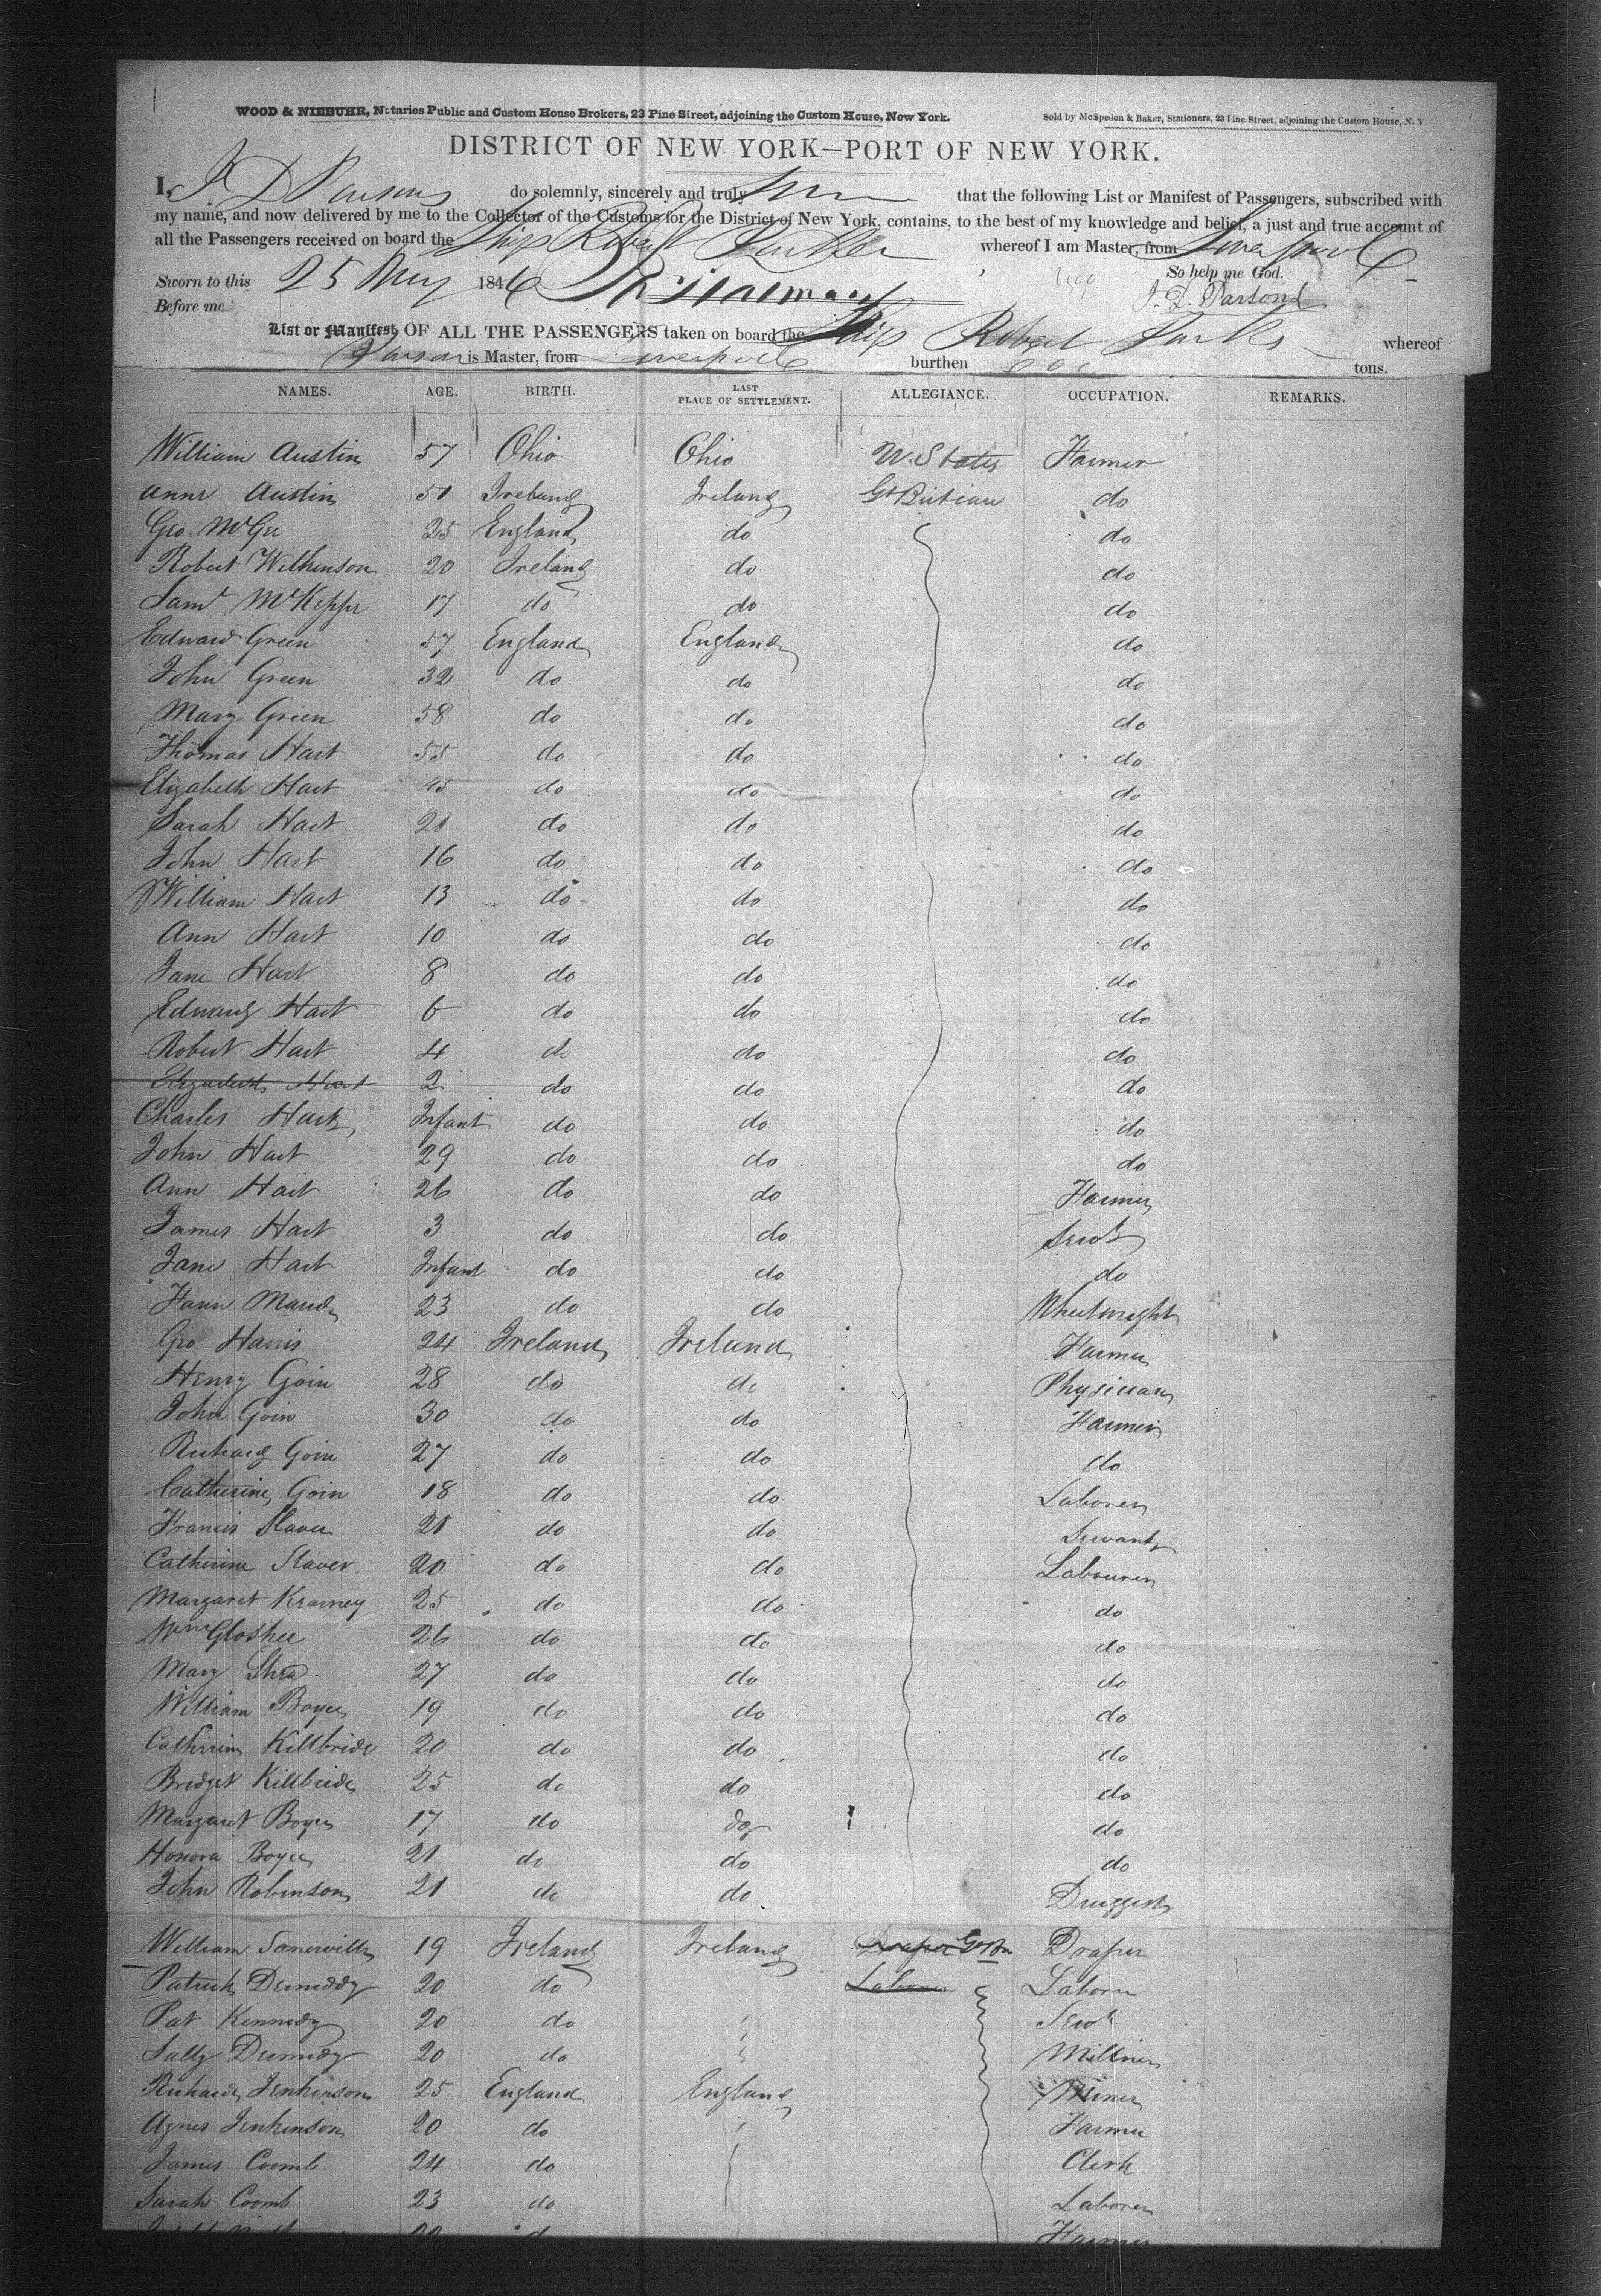 WOOD & NIEBUHR, Notaries Public and Custom House Brokers, 23 Pine Street, adjoining the Custom House, New York.
Sold by McSpedon & Baker, Stationers, 23 Pine Street, adjoining the Custom House, N. Y.
DISTRICT OF NEW YORK—PORT OF NEW YORK.
I, J D Parsons do solemnly, sincerely and truly that the following List or Manifest of Passengers, subscribed with
my name, and now delivered by me to the Collector of the Customs for the District of New York, contains, to the best of my knowledge and belief, a just and true account of
all the Passengers received on board the Ship Robert whereof I am Master, from Liverpool
So help me God.
Sworn to this 25 May 1846
Before me J. D. Parsons
List or Manifest OF ALL THE PASSENGERS taken on board the Ship Robert Parker whereof
Parsons is Master, from Liverpool burthen tons.
NAMES. AGE. BIRTH. LAST PLACE OF SETTLEMENT. ALLEGIANCE. OCCUPATION. REMARKS.
William Austin 57 Ohio Ohio U. States Farmer
Anne Austin 51 Ireland Ireland Gt Britian do
Geo. McGee 25 England do do
Robert Wilkinson 20 Ireland do do
Saml 17 do do do
Edward Green 57 England England do
John Green 32 do do do
Mary Green 58 do do do
Thomas Hart 55 do do do
Elizabeth Hart 45 do do do
Sarah Hart 21 do do do
John Hart 16 do do do
William Hart 13 do do do
Ann Hart 10 do do do
Jane Hart 8 do do do
Edward Hart 6 do do do
Robert Hart 4 do do do
Elizabeth Hart 2 do do do
Charles Hart Infant do do do
John Hart 29 do do do
Ann Hart 26 do do Farmer
James Hart 3 do do Servt
Jane Hart Infant do do do
Mand 23 do do Wheelwright
Geo Harris 24 Ireland Ireland Farmer
Henry Goin 28 do do Physician
John Goin 30 do do Farmer
Richard Goin 27 do do do
Catherine Goin 18 do do Laborer
Francis Slaver 21 do do Servant
Catherine Slaver 20 do do Labourer
Margaret Kearney 25 do do do
Wm 26 do do do
Mary Shea 27 do do do
William Boyce 19 do do do
Catherine Killbride 20 do do do
Bridget Killbride 25 do do do
Margaret Boyce 17 do do do
Honora Boyce 21 do do do
John Robinson 21 do do Druggist
William Somerville 19 Ireland Ireland Draper Gt Bn Draper
Patrick 20 do Laborer Laborer
Pat Kennedy 20 do Servt
Sally 20 do Milliner
Richard Jenkinson 25 England England Miner
Agnes Jenkinson 20 do Farmer
James Coomb 24 do Clerk
Sarah Coomb 23 do Laborer
Farmer